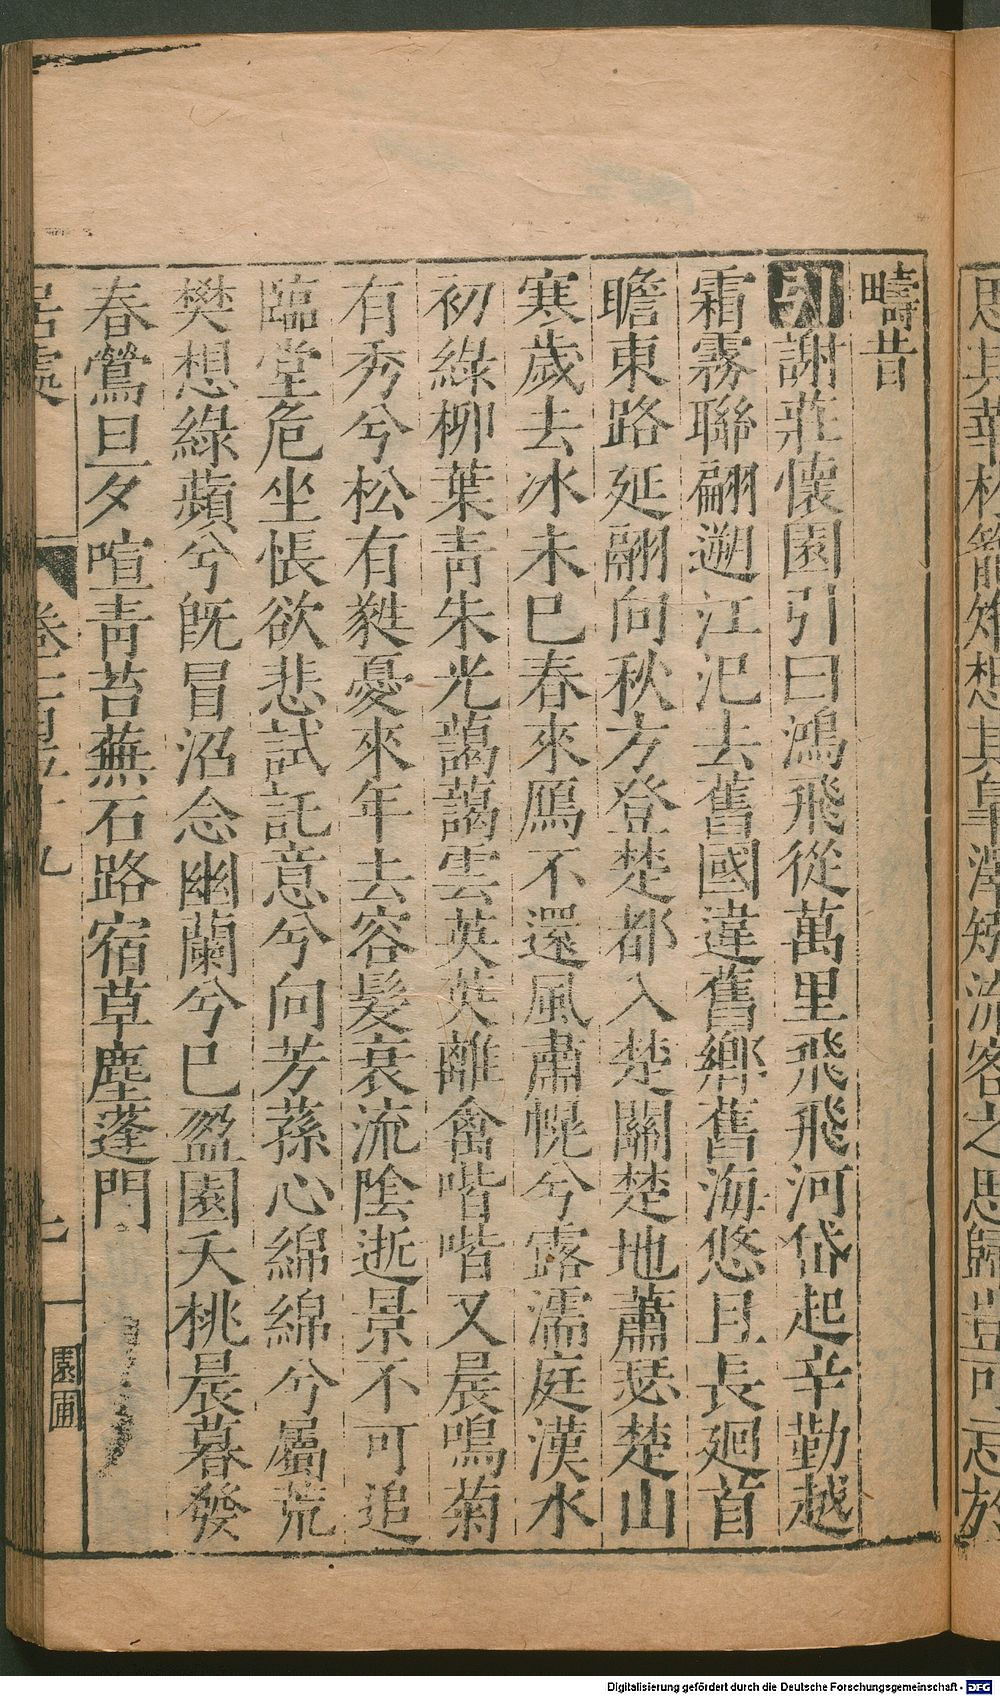 思其華林籠雉想其皐澤矯流客之思歸豈可忘於
疇昔
引謝莊懷園引曰鴻飛從萬里飛飛河岱起辛勤越
霜霧聯翩遡江汜去舊國違舊鄉舊海悠且長廻首
瞻東路延翮向秋方登楚都入楚關楚地蕭瑟楚山
寒歲去冰未已春來鴈不還風肅幌兮露濡庭漢水
初綠柳葉靑朱光藹藹雲英英離禽喈喈又晨鳴菊
有秀兮松有蕤憂來年去容髮衰流陰逝景不可追
臨堂危坐悵欲悲試託意兮向芳蓀心綿綿兮屬荒
樊想綠蘋兮旣冒沼念幽蘭兮已盈園夭桃晨暮發
春鶯旦夕喧靑苔蕪石路宿草塵蓬門
居處
卷
九
七
園圃
Digitalisierung gefördert durch die Deutsche Forschungsgemeinschaft - DFG